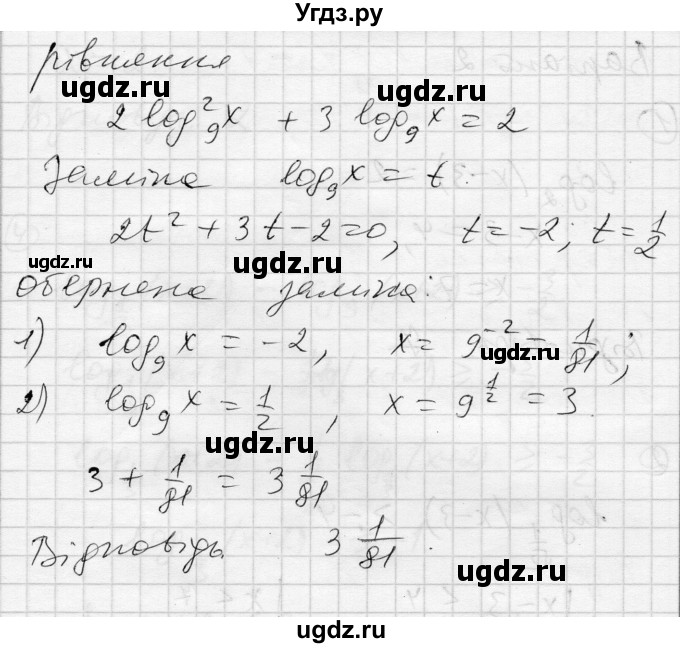 Угдз.ру
рівняння
ugdz.ru ugdz.ru
2 log₉²x + 3 log₉x = 2
Заміна log₉x = t.
2t² + 3t - 2 = 0, t = -2; t = 1/2
ugdz.ru ugdz.ru
обернена заміна:
1) log₉x = -2, x = 9⁻² = 1/81;
ugdz.ru
2) log₉x = 1/2, x = 9^(1/2) = 3.
ugdz.ru
3 + 1/81 = 3 1/81
Відповідь 3 1/81.
ugdz.ru
ugdz.ru